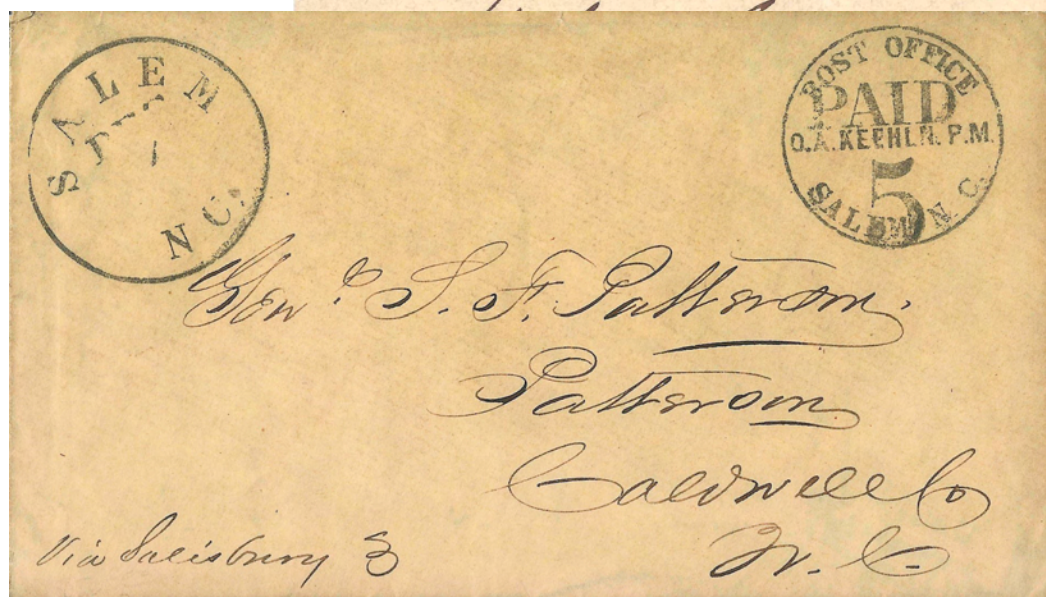 SALEM
1
N C.
POST OFFICE
PAID
O.A. KEEHLN. P.M.
5
SALEM N. C.
Genl. S. F. Patterson.
Patterson
Caldwell Co
N. C.
Via Salisbury